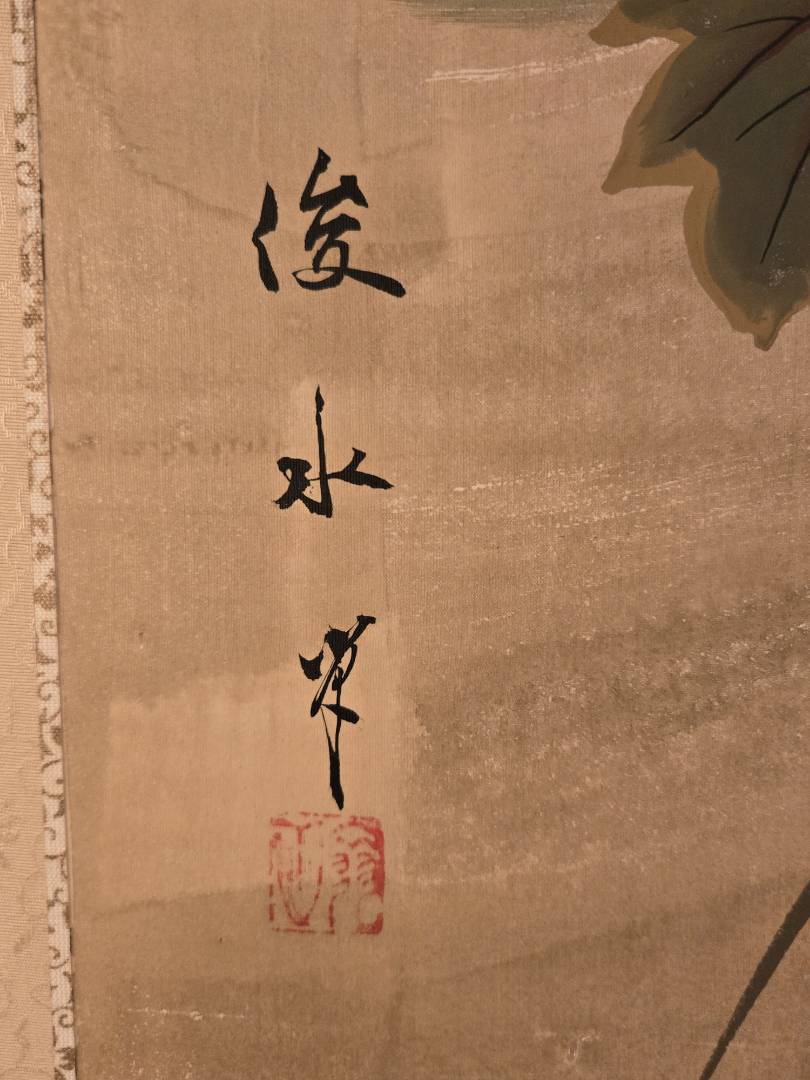 俊水筆